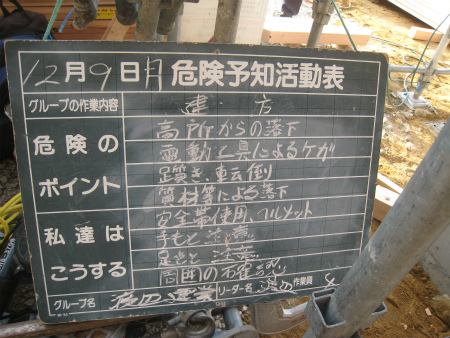 12月9日月 危険予知活動表
グループの作業内容 建方
危険のポイント
高所からの落下
電動工具によるケガ
足躓き、転倒
資材等による落下
私達はこうする
安全帯使用、ヘルメット
手もと注意
足もと注意
周囲の確認
グループ名 リーダー名 作業員 4